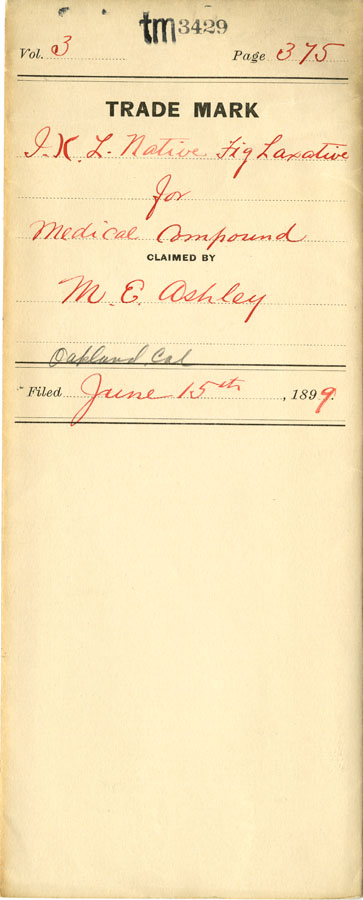 tm 3429
Vol. 3 Page 375
TRADE MARK
I. K. L. Native Fig Laxative
for
Medical Compound
CLAIMED BY
M. E. Ashley
Oakland Cal
Filed June 15th, 1899.